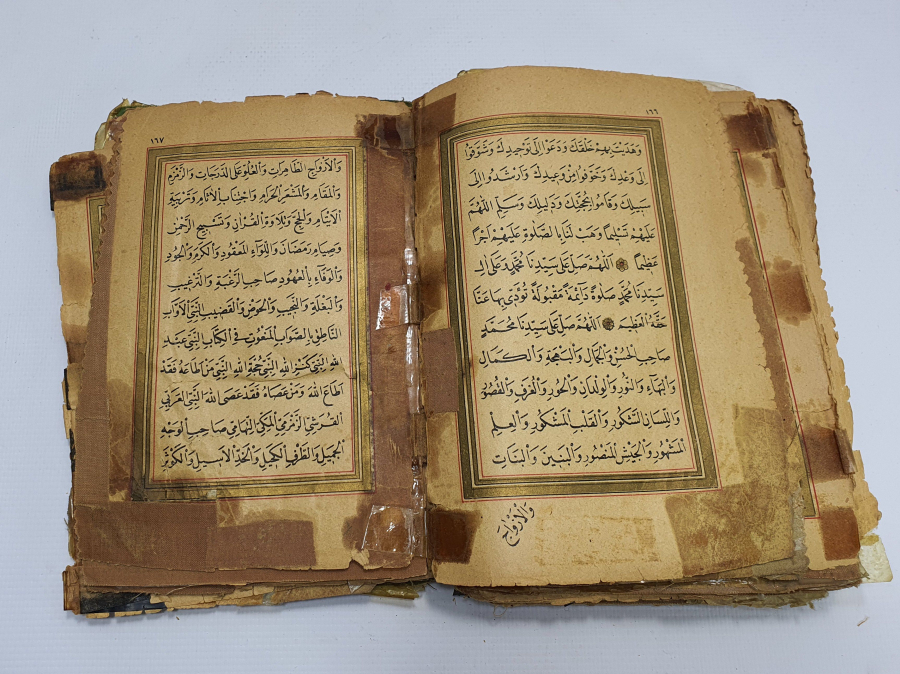 ١٦٦
وَهَدَيْتَ بِهِمْ خَلْقَكَ وَدَعَوْا اِلٰى تَوْحِيدِكَ وَشَوَّقُوا
اِلٰى وَعْدِكَ وَخَوَّفُوا مِنْ وَعِيدِكَ وَاَرْشَدُوا اِلٰى
سَبِيلِكَ وَقَامُوا بِحُجَّتِكَ وَدَلِيلِكَ وَسَلِّمِ اللّٰهُمَّ
عَلَيْهِمْ تَسْلِيمًا وَهَبْ لَنَا بِالصَّلٰوةِ عَلَيْهِمْ اَجْرًا
عَظِيمًا اَللّٰهُمَّ صَلِّ عَلٰى سَيِّدِنَا مُحَمَّدٍ وَعَلٰى اٰلِ
سَيِّدِنَا مُحَمَّدٍ صَلٰوةً دَآئِمَةً مَقْبُولَةً تُؤَدّٰى بِهَا عَنَّا
حَقَّهُ الْعَظِيمَ اَللّٰهُمَّ صَلِّ عَلٰى سَيِّدِنَا مُحَمَّدٍ
صَاحِبِ الْحُسْنِ وَالْجَمَالِ وَالْبَهْجَةِ وَالْكَمَالِ
وَالْبَهَآءِ وَالنُّورِ وَالْوِلْدَانِ وَالْحُورِ وَالْغُرَفِ وَالْقُصُورِ
وَاللِّسَانِ الشَّكُورِ وَالْقَلْبِ الْمَشْكُورِ وَالْعِلْمِ
الْمَشْهُورِ وَالْجَيْشِ الْمَنْصُورِ وَالْبَنِينَ وَالْبَنَاتِ
وَالْاَزْوَاجِ
١٦٧
وَالْاَزْوَاجِ الطَّاهِرَاتِ وَالْعُلُوِّ عَلَى الدَّرَجَاتِ وَالزَّمْزَمِ
وَالْمَقَامِ وَالْمَشْعَرِ الْحَرَامِ وَاجْتِنَابِ الْاٰثَامِ وَتَرْبِيَةِ
الْاَيْتَامِ وَالْحَجِّ وَتِلَاوَةِ الْقُرْاٰنِ وَتَسْبِيحِ الرَّحْمٰنِ
وَصِيَامِ رَمَضَانَ وَاللِّوَآءِ الْمَعْقُودِ وَالْكَرَمِ وَالْجُودِ
وَالْوَفَآءِ بِالْعُهُودِ صَاحِبِ الرَّغْبَةِ وَالتَّرْغِيبِ
وَالْبَغْلَةِ وَالنَّجِيبِ وَالْحَوْضِ وَالْقَضِيبِ النَّبِيِّ الْاَوَّابِ
النَّاطِقِ بِالصَّوَابِ الْمَنْعُوتِ فِي الْكِتَابِ النَّبِيِّ عَبْدِ
اللّٰهِ النَّبِيِّ كَنْزِ اللّٰهِ النَّبِيِّ حُجَّةِ اللّٰهِ النَّبِيِّ مَنْ اَطَاعَهُ فَقَدْ
اَطَاعَ اللّٰهَ وَمَنْ عَصَاهُ فَقَدْ عَصَى اللّٰهَ النَّبِيِّ الْعَرَبِيِّ
الْقُرَشِيِّ الزَّمْزَمِيِّ الْمَكِّيِّ التِّهَامِيِّ صَاحِبِ الْوَجْهِ
الْجَمِيلِ وَالطَّرْفِ الْكَحِيلِ وَالْخَدِّ الْاَسِيلِ وَالْكَوْثَرِ